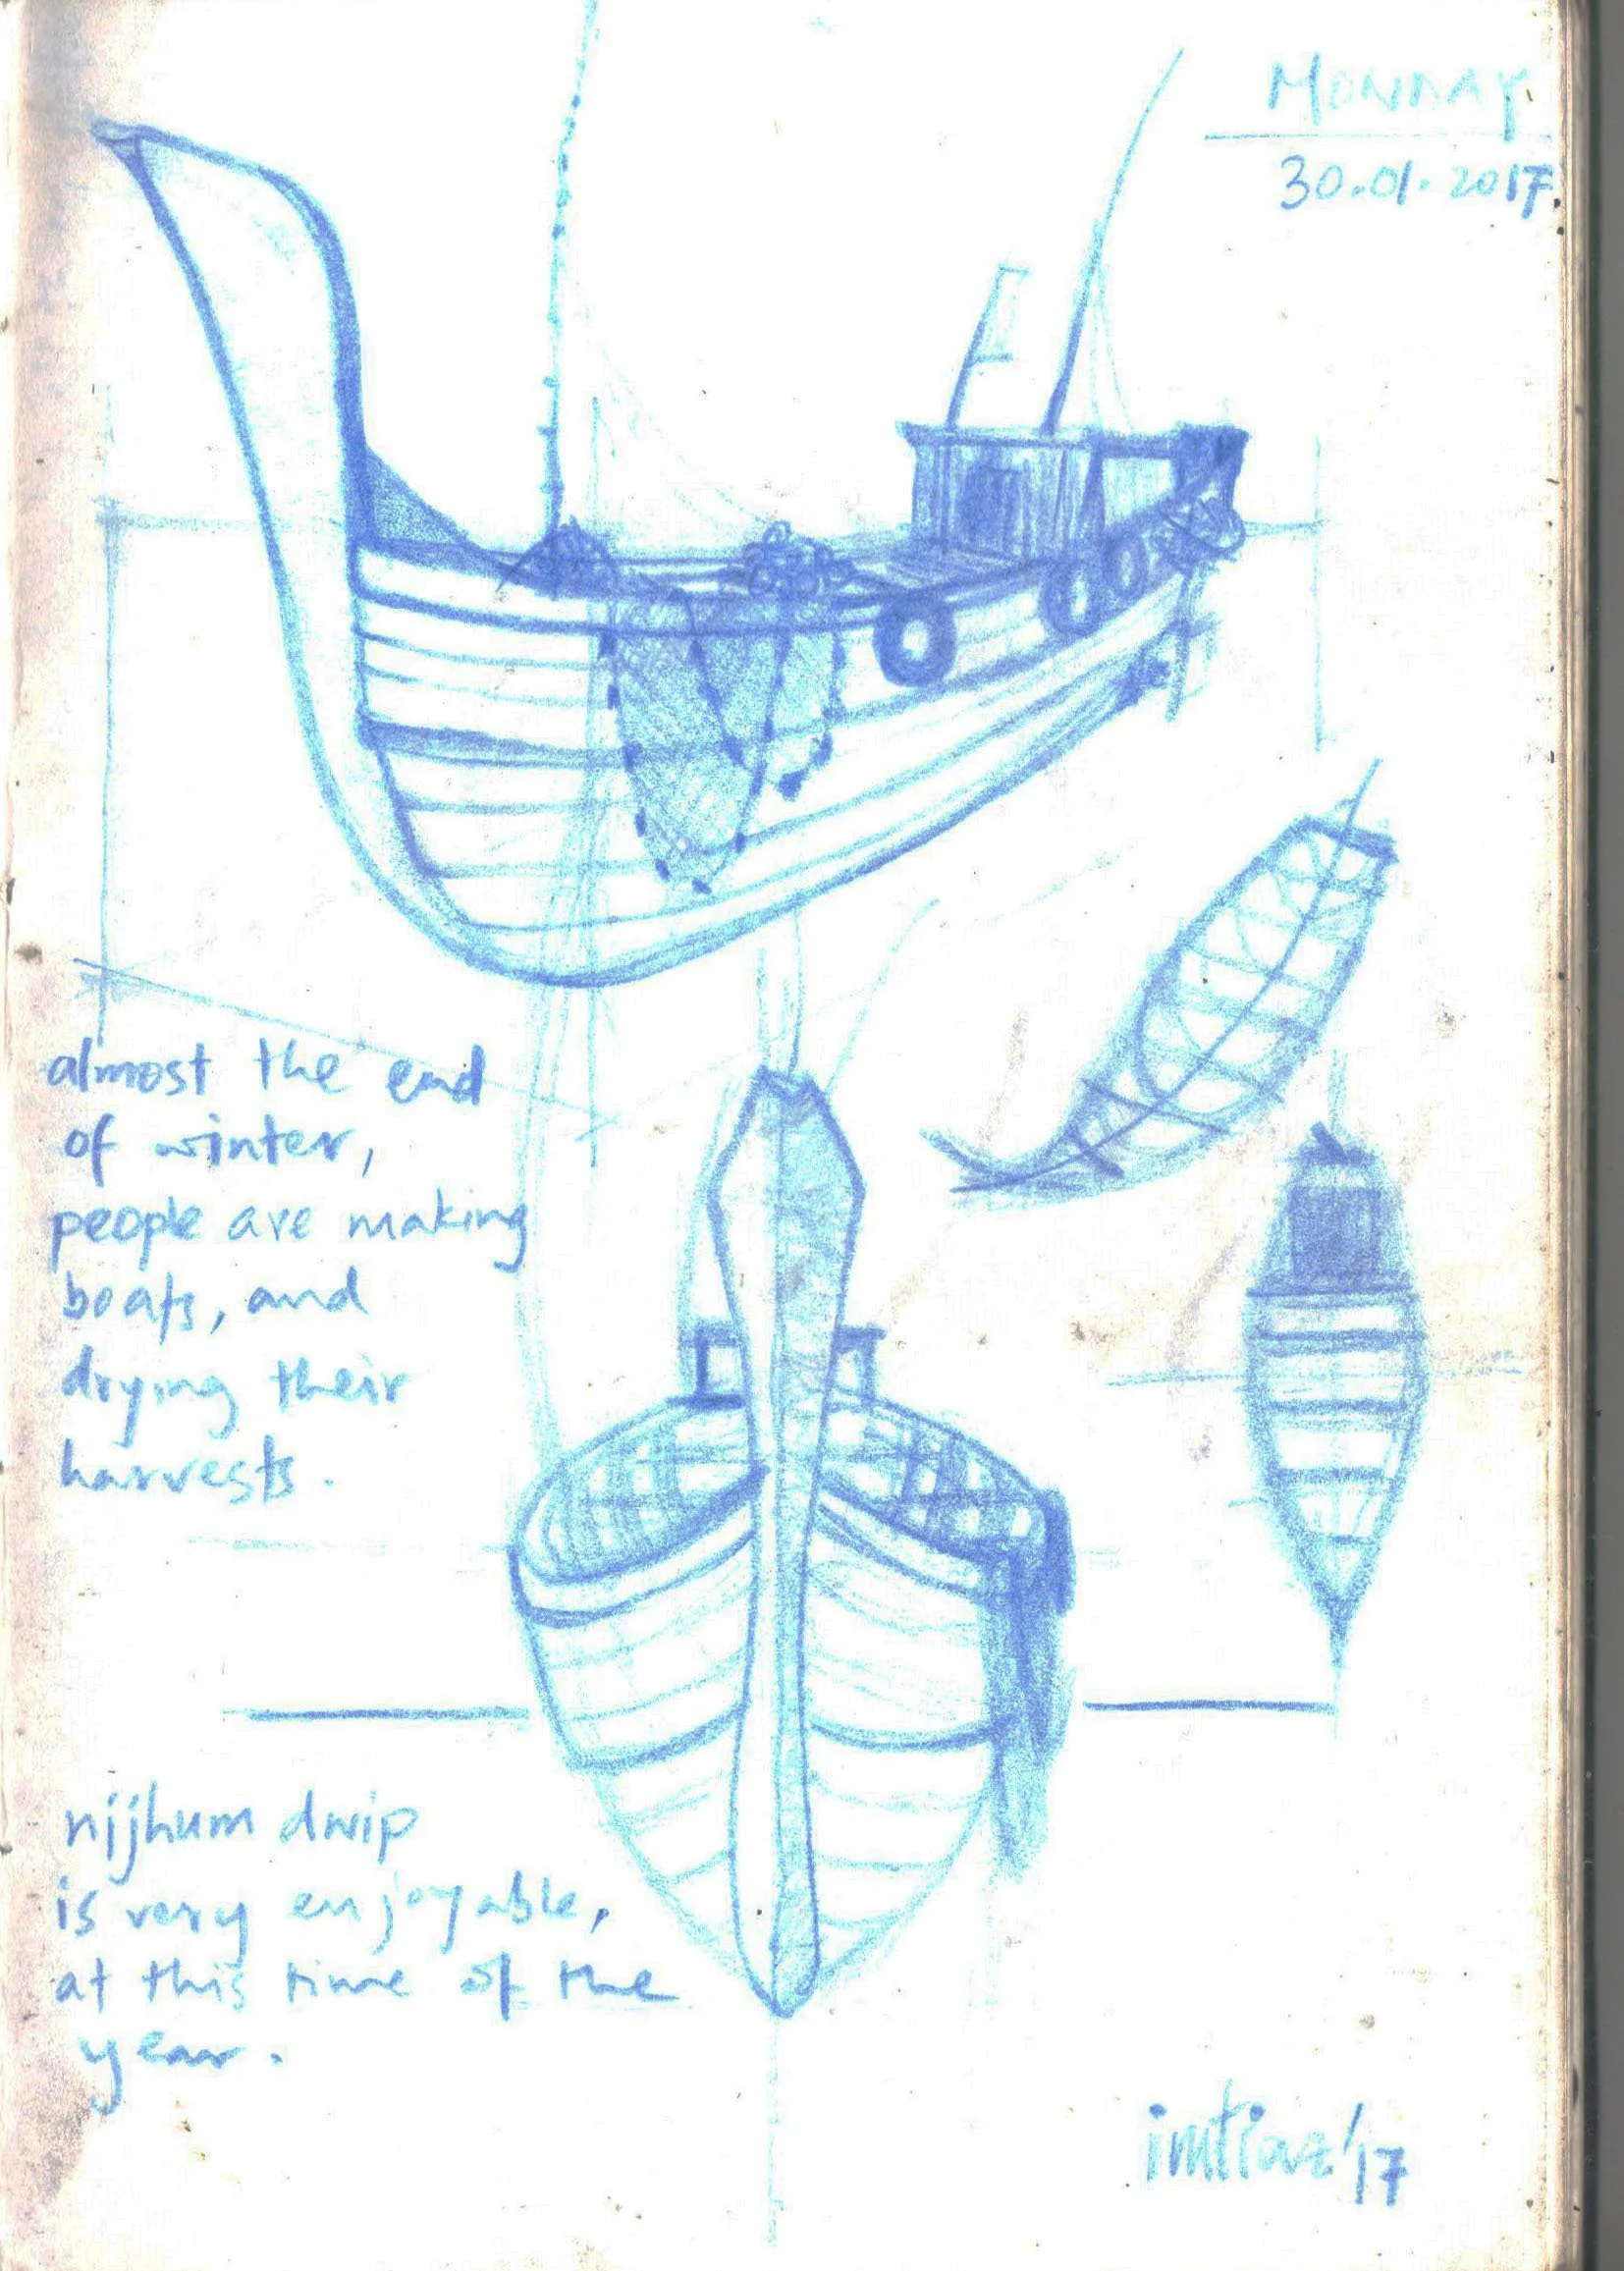 MONDAY
30.01.2017.
almost the end
of winter,
people are making
boats, and
drying their
harvests.
nijhum dwip
is very enjoyable,
at this time of the
year.
imtiaz '17